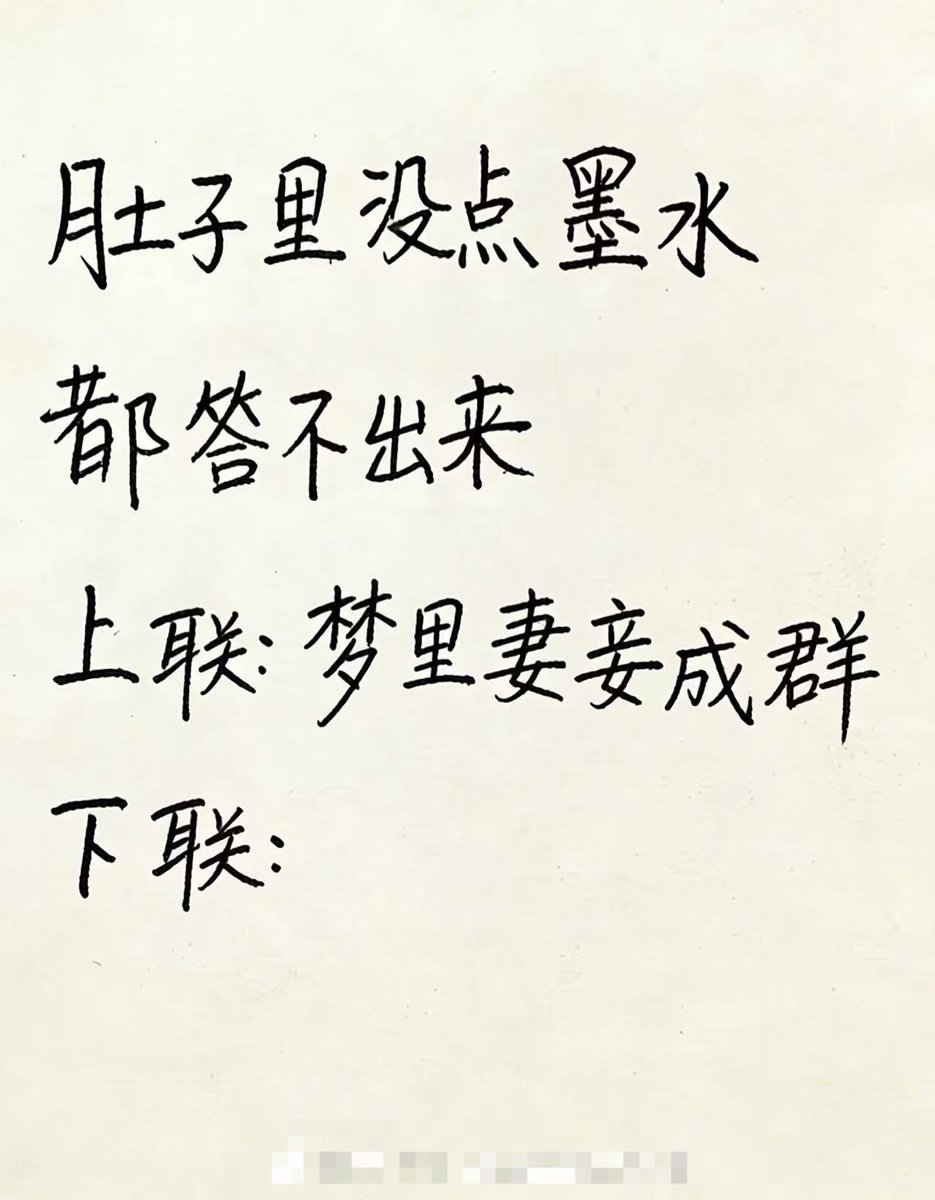 肚子里没点墨水
都答不出来
上联:梦里妻妾成群
下联: